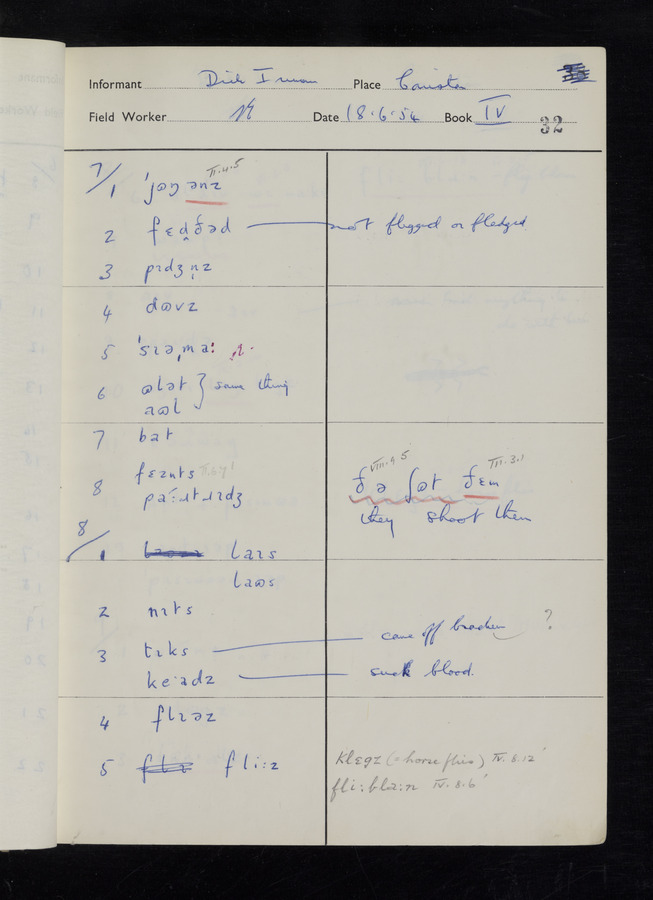 Informant Dick Inman Place Caister
Field Worker Date 18.6.54 Book IV
32
7/1 ˈjɷŋ ənz II.4.5
2 fɛd̬ðəd not flegged or fledged
3 pɪdʒn̩z
4 dɷvz
5 ˈsɪəˌmaː
6 ɷlət } same thing
aɷl
7 bat
8 fɛznts
paːɹtɹɪdʒ
VIII.9.5 III.3.1
ðə ʃɷt ðɛm
they shoot them
8/1 laɪs
laɷs
2 nɪts
3 tɪks came off bracken ?
keˑadz suck blood.
4 flɪəz
5 fliːz
klɛgz (= horse flies) IV.8.12
fliːblaːn IV.8.6